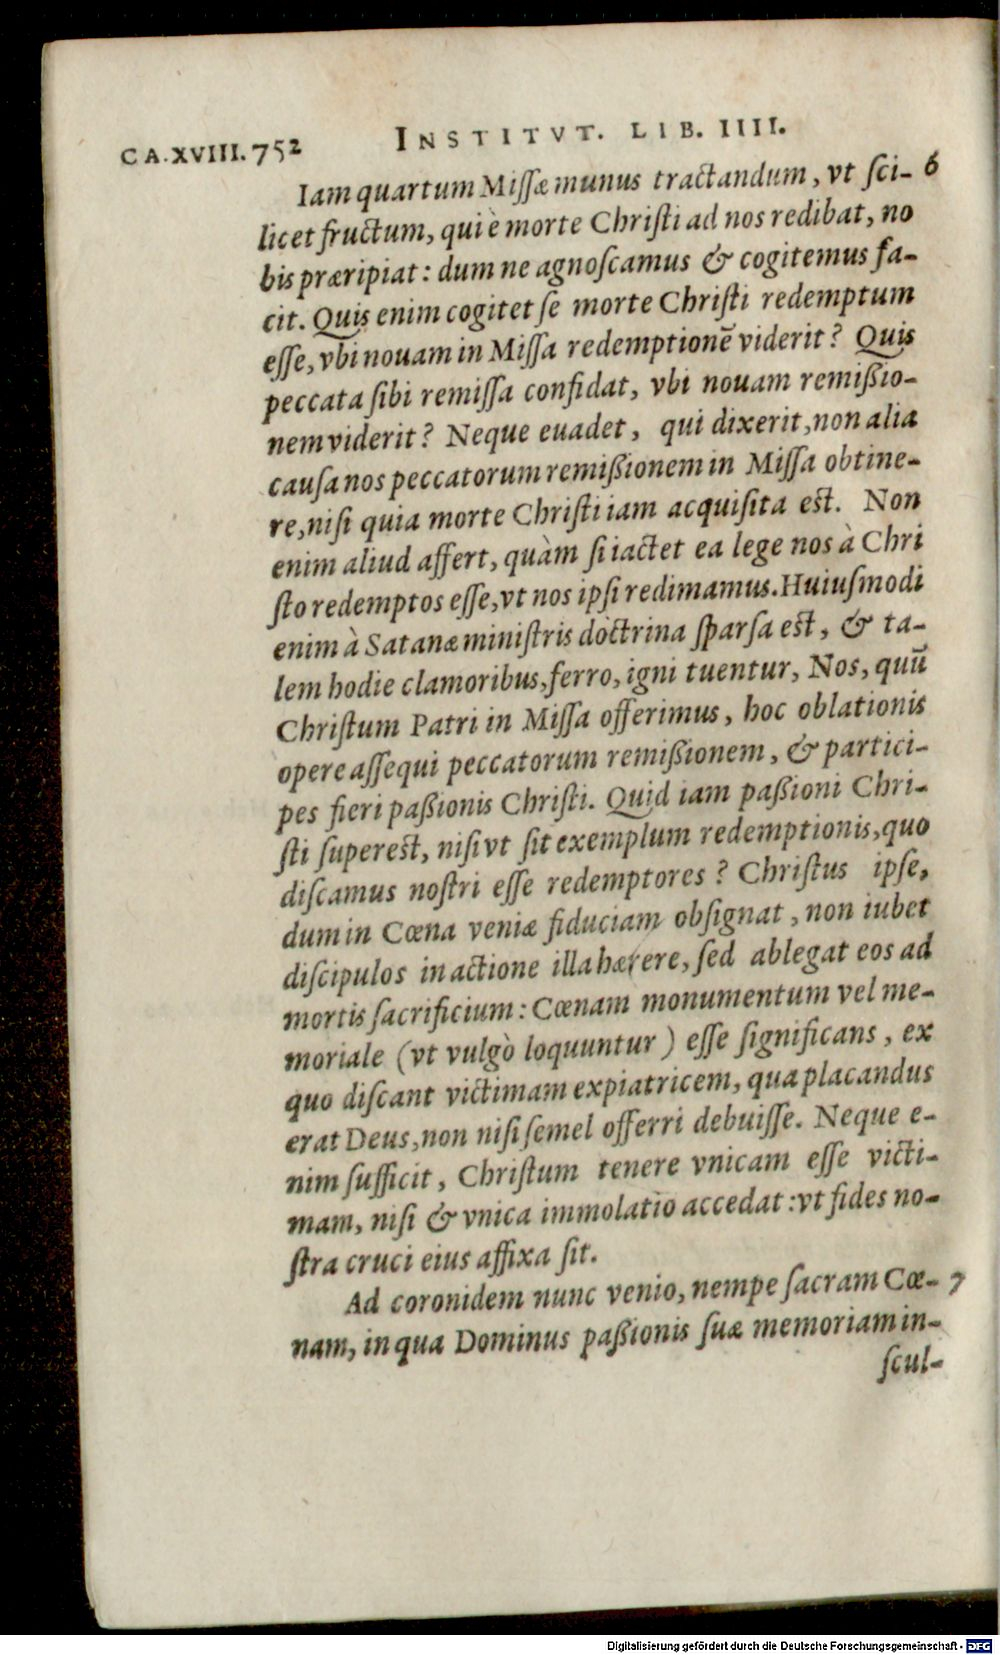 CA.XVIII.752 INSTITVT. LIB. IIII.
Iam quartum Missæ munus tractandum, vt sci- 6
licet fructum, qui è morte Christi ad nos redibat, no
bis præripiat: dum ne agnoscamus & cogitemus fa-
cit. Quis enim cogitet se morte Christi redemptum
esse, vbi nouam in Missa redemptionē viderit? Quis
peccata sibi remissa confidat, vbi nouam remißio-
nem viderit? Neque euadet, qui dixerit, non alia
causa nos peccatorum remißionem in Missa obtine-
re, nisi quia morte Christi iam acquisita est. Non
enim aliud affert, quàm si iactet ea lege nos à Chri
sto redemptos esse, vt nos ipsi redimamus. Huiusmodi
enim à Satanæ ministris doctrina sparsa est, & ta-
lem hodie clamoribus, ferro, igni tuentur, Nos, quū
Christum Patri in Missa offerimus, hoc oblationis
opere assequi peccatorum remißionem, & partici-
pes fieri paßionis Christi. Quid iam paßioni Chri-
sti superest, nisi vt sit exemplum redemptionis, quo
discamus nostri esse redemptores? Christus ipse,
dum in Cœna veniæ fiduciam obsignat, non iubet
discipulos in actione illa hærere, sed ablegat eos ad
mortis sacrificium: Cœnam monumentum vel me-
moriale (vt vulgò loquuntur) esse significans, ex
quo discant victimam expiatricem, qua placandus
erat Deus, non nisi semel offerri debuisse. Neque e-
nim sufficit, Christum tenere vnicam esse victi-
mam, nisi & vnica immolatio accedat: vt fides no-
stra cruci eius affixa sit.
Ad coronidem nunc venio, nempe sacram Cœ- 7
nam, in qua Dominus paßionis suæ memoriam in-
scul-
Digitalisierung gefördert durch die Deutsche Forschungsgemeinschaft - DFG